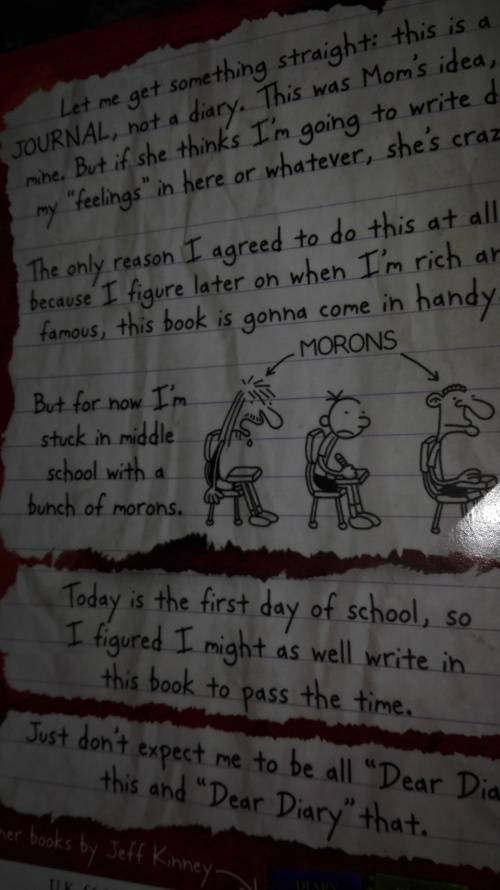 Let me get something straight: this is a
JOURNAL, not a diary. This was Mom's idea,
mine. But if she thinks I'm going to write d
my "feelings" in here or whatever, she's craz
The only reason I agreed to do this at all
because I figure later on when I'm rich an
famous, this book is gonna come in handy
MORONS
But for now I'm
stuck in middle
school with a
bunch of morons.
Today is the first day of school, so
I figured I might as well write in
this book to pass the time.
Just don't expect me to be all "Dear Dia
this and "Dear Diary" that.
her books by Jeff Kinney